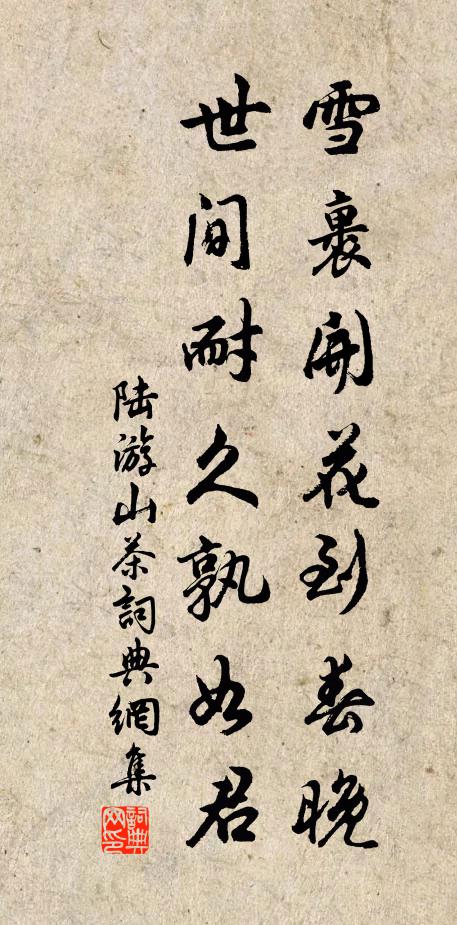 雪裏開花到春晚
世間耐久孰如君
陆游山茶詞典網集
詞典网印